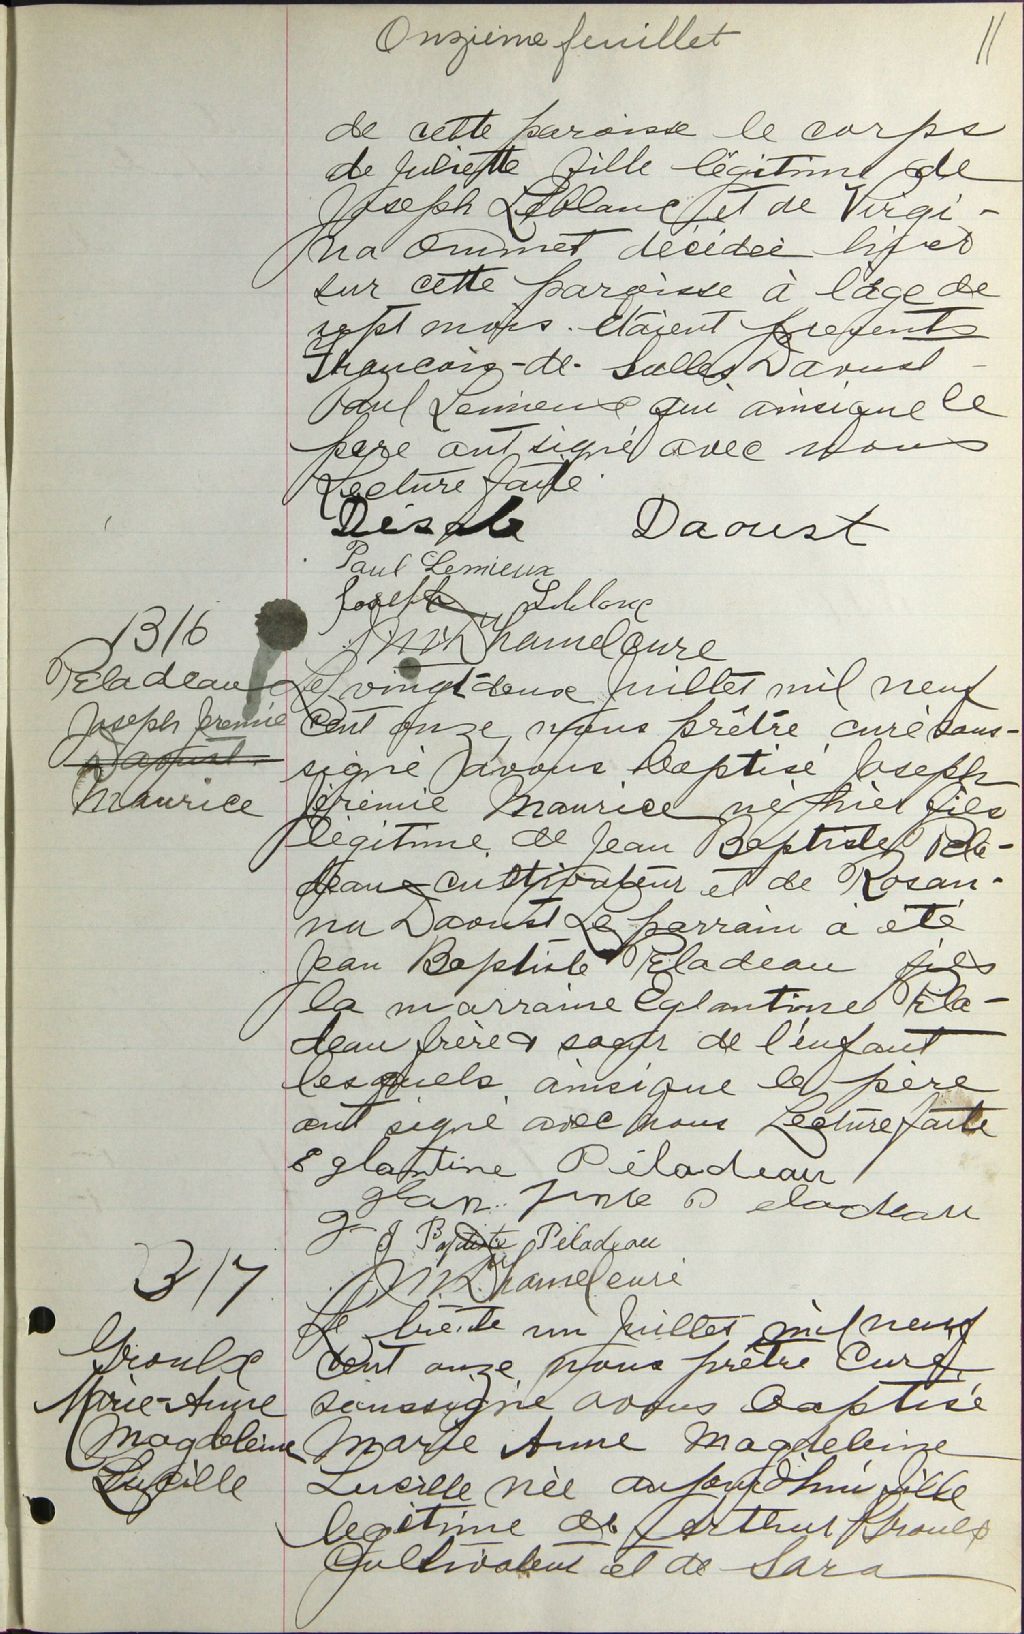 Onzième feuillet
11
de cette paroisse le corps
de Juliette fille légitime de
Joseph Leblanc et de Virgi-
na décédée hier
sur cette paroisse à l'âge de
sept mois. Etaient presents
Francois-de-Salles Daoust
Paul Lemieux qui ainsique le
pere ont signé avec nous
Lecture faite.
Daoust
Paul Lemieux
Joseph Leblanc
curé
B16
Peladeau
Joseph Jeremie
Daoust
Maurice
Le vingt-deux Juillet mil neuf
cent onze nous prêtre curé sous-
signé avons baptisé Joseph
Jérémie Maurice né hier fils
légitime de Jean Baptiste Péla-
deau cultivateur et de Rosan-
na Daoust Le parrain à été
Jean Baptiste Péladeau fils
la marraine Eglantine Péla-
deau frère & soeur de l'enfant
lesquels ainsique le père
ont signé avec nous Lecture faite
Eglantine Péladeau
Peladeau
J Baptiste Péladeau
curé
B17
Groulx
Marie-Anne
Magdeleine
Lucille
Le trente un Juillet mil neuf
cent onze nous prêtre curé
soussigné avons baptisé
Marie Anne Magdeleine
Lucille née aujourd'hui fille
legitime de Arthur Groulx
Cultivateur et de Sara